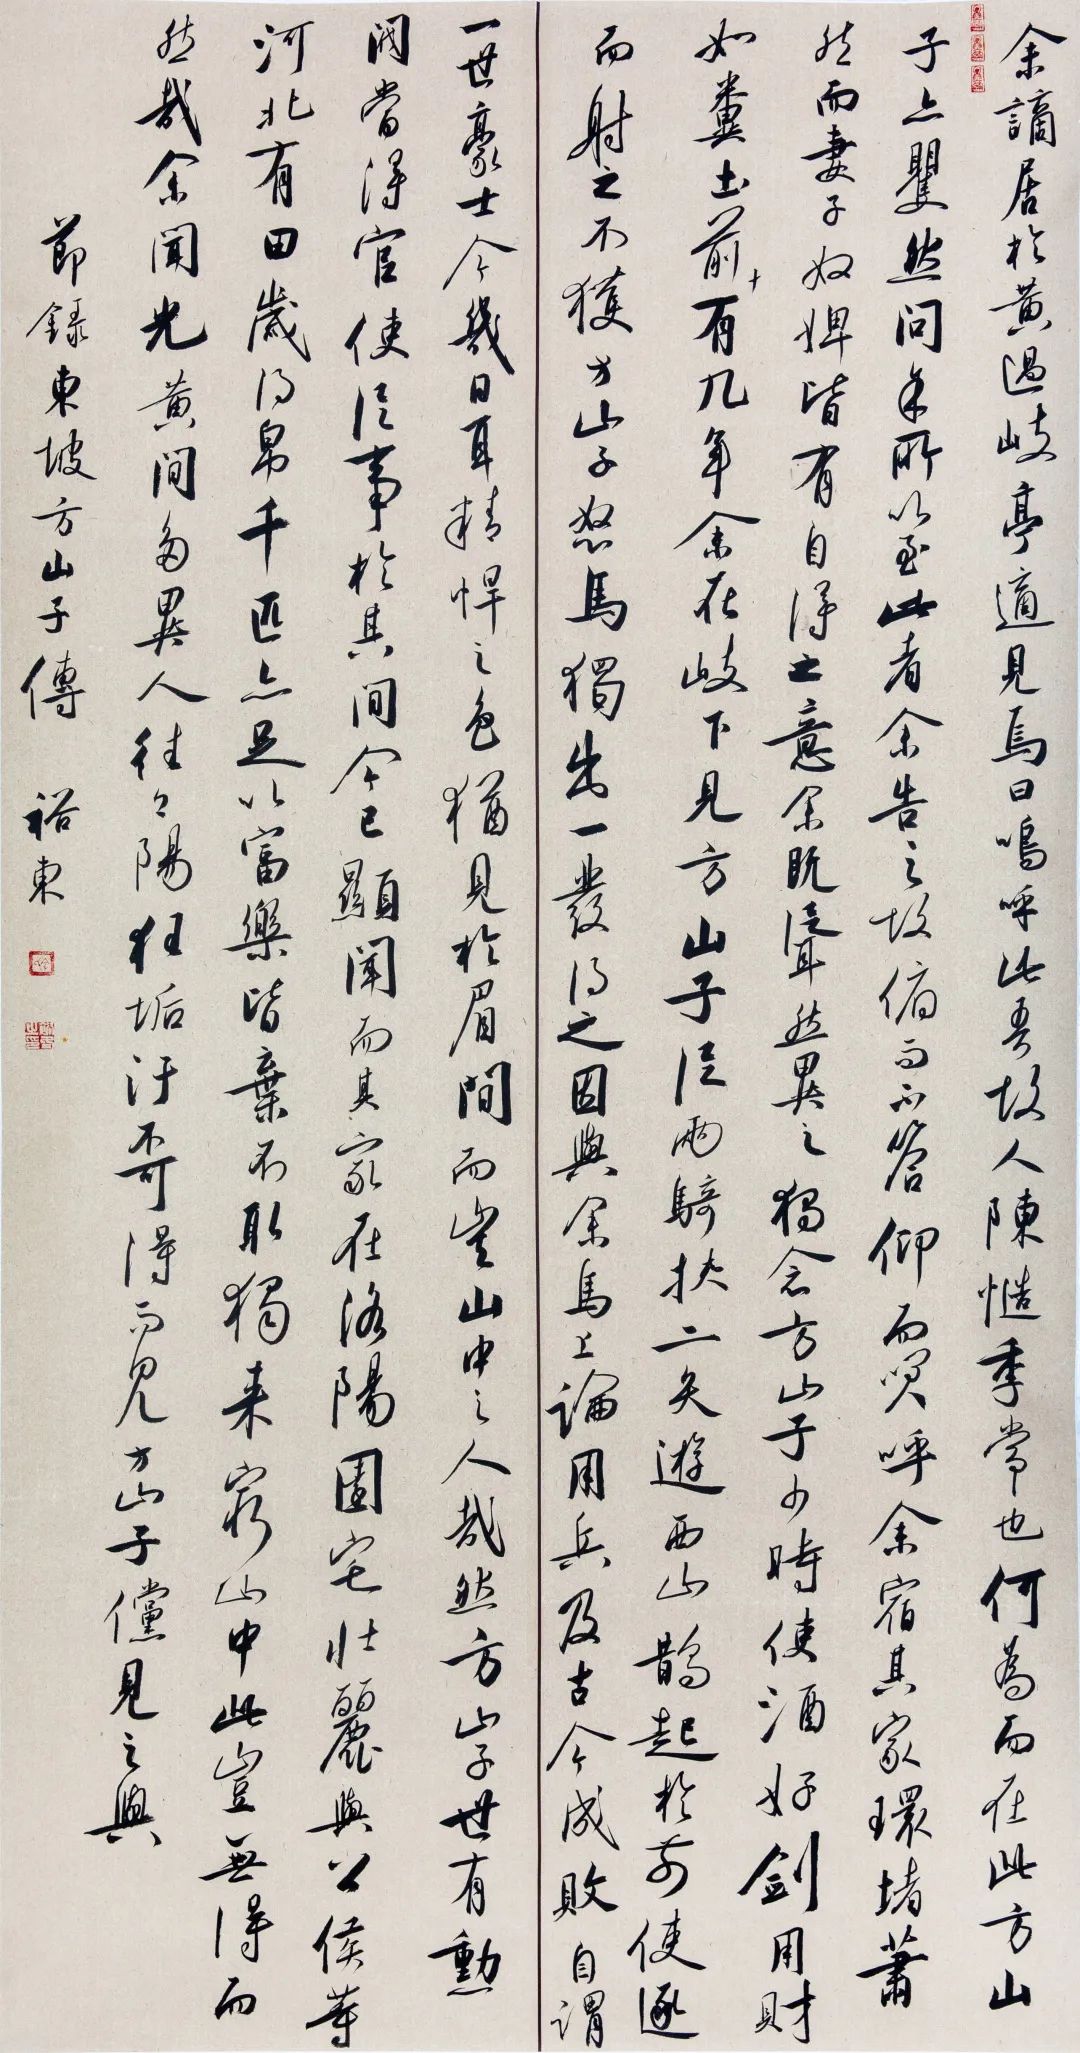 余謫居於黃過岐亭適見焉曰嗚呼此吾故人陳慥季常也何為而在此方山
子亦矍然問余所以至此者余告之故俯而不答仰而笑呼余宿其家環堵蕭
然而妻子奴婢皆有自得之意余既聳然異之獨念方山子少時使酒好劍用財
如糞土前十有九年余在岐下見方山子從兩騎挾二矢遊西山鵲起於前使逐
而射之不獲方山子怒馬獨出一發得之因與余馬上論用兵及古今成敗自謂
一世豪士今幾日耳精悍之色猶見於眉間而豈山中之人哉然方山子世有勳
閥當得官使從事於其間今已顯聞而其家在洛陽園宅壯麗與公侯等
河北有田歲得帛千匹亦足以富樂皆棄不取獨來窮山中此豈無得而
然哉余聞光黃間多異人往々陽狂垢汙不可得而見方山子儻見之與
節錄東坡方山子傳 裕東